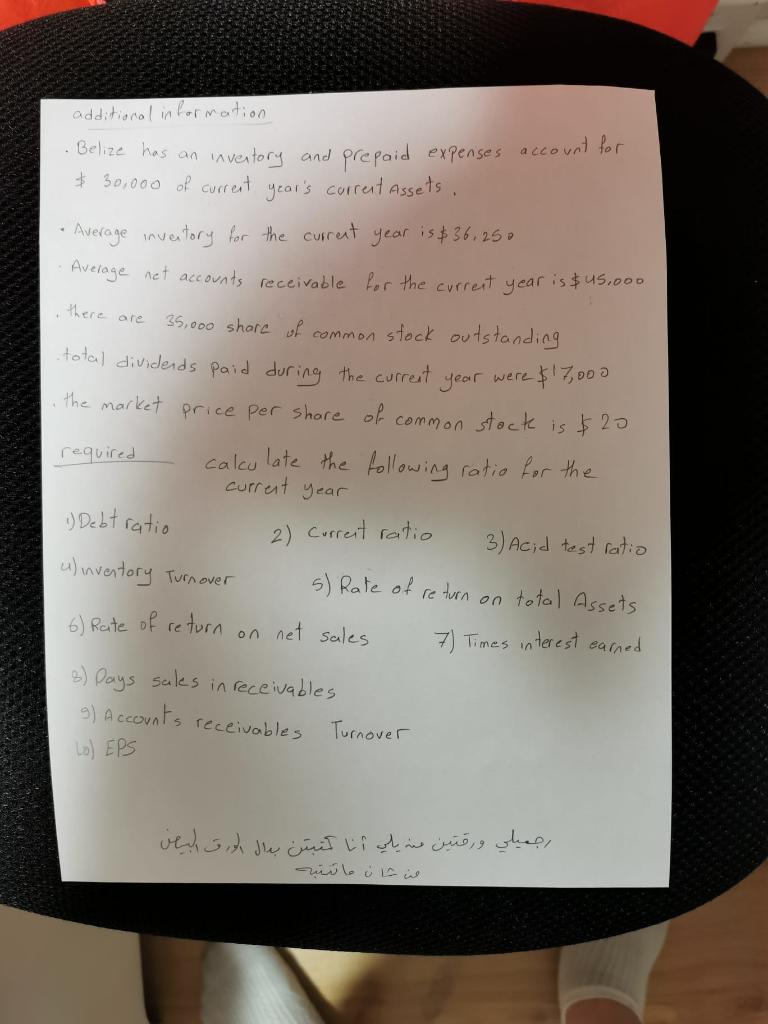 additional information
. Belize has an inventory and prepaid expenses account for
$ 30,000 of current year's current Assets .
• Average inventory for the current year is $ 36,250
· Average net accounts receivable for the current year is $ 45,000
. there are 35,000 share of common stock outstanding
. total dividends paid during the current year were $ 17,000
. the market price per share of common stock is $ 20
required calculate the following ratio for the
current year
1) Debt ratio 2) Current ratio 3) Acid test ratio
4) inventory Turnover 5) Rate of return on total Assets
6) Rate of return on net sales 7) Times interest earned
8) Days sales in receivables
9) Accounts receivables Turnover
10) EPS
ورقتين أنا كتبتن بدال الورق